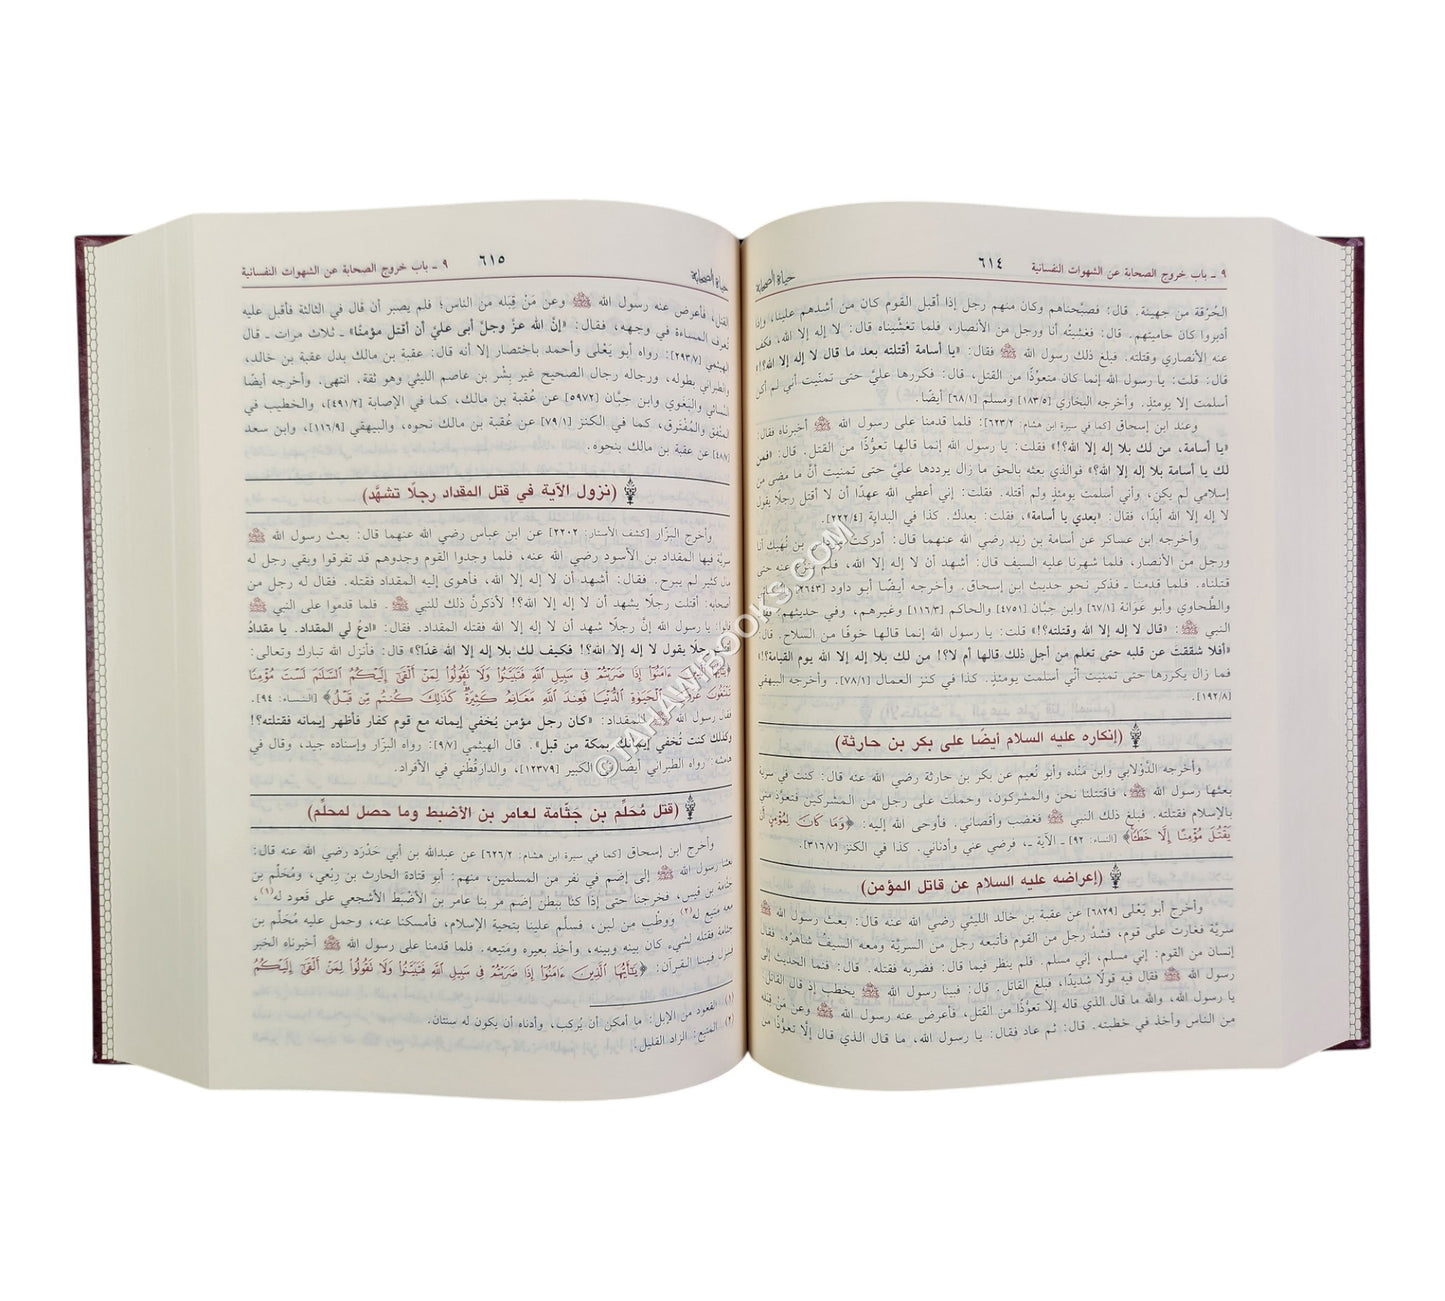 ٩ ـ باب خروج الصحابة عن الشهوات النفسانية ٦١٤ حياة الصحابة
الحُرَقة من جهينة. قال: فصبَّحناهم وكان منهم رجل إذا أقبل القوم كان من أشدهم علينا، وإذا
أدبروا كان حاميتهم. قال: فغشيتُه أنا ورجل من الأنصار، فلما تغشَّيناه قال: لا إله إلا الله، فكف
عنه الأنصاري وقتلته. فبلغ ذلك رسول الله ﷺ فقال: «يا أسامة أقتلته بعد ما قال لا إله إلا الله؟!»
قال: قلت: يا رسول الله إنما كان متعوِّذًا من القتل، قال: فكررها عليَّ حتى تمنَّيت أني لم أكن
أسلمت إلا يومئذٍ. وأخرجه البخاري [١٨٣/٥] ومسلم [٦٨/١] أيضًا.
وعند ابن إسحاق [كما في سيرة ابن هشام: ٦٢٣/٢]: فلما قدمنا على رسول الله ﷺ أخبرناه فقال:
«يا أسامة، من لك بلا إله إلا الله؟!» فقلت: يا رسول الله إنما قالها تعوُّذًا من القتل. قال: «فمن
لك يا أسامة بلا إله إلا الله؟» فوالذي بعثه بالحق ما زال يرددها عليَّ حتى تمنيت أنَّ ما مضى من
إسلامي لم يكن، وأني أسلمت يومئذٍ ولم أقتله. فقلت: إني أعطي الله عهدًا أن لا أقتل رجلًا يقول
لا إله إلا الله أبدًا، فقال: «بعدي يا أسامة»، فقلت: بعدك. كذا في البداية [٢٢٢/٤].
وأخرجه ابن عساكر عن أسامة بن زيد رضي الله عنهما قال: أدركت بن نُهيك أنا
ورجل من الأنصار، فلما شهرنا عليه السيف قال: أشهد أن لا إله إلا الله، فلم عنه حتى
قتلناه. فلما قدمنا ـ فذكر نحو حديث ابن إسحاق. وأخرجه أيضًا أبو داود [٢٦٤٣]
والطَّحاوي وأبو عَوَانة [٦٧/١] وابن حِبَّان [٤٧٥١] والحاكم [١١٦/٣] وغيرهم، وفي حديثهم: فقال
النبي ﷺ: «قال لا إله إلا الله وقتلته؟!» قلت: يا رسول الله إنما قالها خوفًا من السلاح. قال:
«أفلا شققت عن قلبه حتى تعلم من أجل ذلك قالها أم لا؟! من لك بلا إله إلا الله يوم القيامة؟!»
فما زال يكررها حتى تمنيت أني أسلمت يومئذٍ. كذا في كنز العمال [٧٨/١]. وأخرجه البيهقي
[١٩٢/٨].
(إنكاره عليه السلام أيضًا على بكر بن حارثة)
وأخرجه الدُّولابي وابن مَنْده وأبو نُعيم عن بكر بن حارثة رضي الله عنه قال: كنت في سرية
بعثها رسول الله ﷺ، فاقتتلنا نحن والمشركون، وحملت على رجل من المشركين فتعوَّذ مني
بالإسلام فقتلته. فبلغ ذلك النبي ﷺ فغضب وأقصاني. فأوحى الله إليه: ﴿وَمَا كَانَ لِمُؤْمِنٍ أَن
يَقْتُلَ مُؤْمِنًا إِلَّا خَطَـًٔا﴾ [النساء: ٩٢] ـ الآية ـ، فرضي عني وأدناني. كذا في الكنز [٣١٦/٧].
(إعراضه عليه السلام عن قاتل المؤمن)
وأخرج أبو يَعْلى [٦٨٢٩] عن عقبة بن خالد الليثي رضي الله عنه قال: بعث رسول الله ﷺ
سريَّة فغارت على قوم، فشذَّ رجل من القوم فأتبعه رجل من السريَّة ومعه السيفُ شاهرُه، فقال
إنسان من القوم: إني مسلم، إني مسلم. فلم ينظر فيما قال: فضربه فقتله. قال: فنما الحديث إلى
رسول الله ﷺ فقال فيه قولًا شديدًا، فبلغ القاتل. قال: فبينا رسول الله ﷺ يخطب إذ قال القاتل:
يا رسول الله، والله ما قال الذي قاله إلا تعوُّذًا من القتل، فأعرض عنه رسول الله ﷺ وعن مَنْ قِبَله
مِن الناس وأخذ في خطبته. قال: ثم عاد فقال: يا رسول الله، ما قال الذي قال إلَّا تعوُّذًا من
٩ ـ باب خروج الصحابة عن الشهوات النفسانية ٦١٥ حياة الصحابة
القتل، فأعرض عنه رسول الله ﷺ وعن مَنْ قِبَله من الناس؛ فلم يصبر أن قال في الثالثة فأقبل عليه
تُعرف المساءة في وجهه، فقال: «إنَّ الله عزَّ وجلَّ أبى عليَّ أن أقتل مؤمنًا» ـ ثلاث مرات ـ. قال
الهيثمي [٢٩٣/٧]: رواه أبو يَعْلى وأحمد باختصار إلا أنه قال: عقبة بن مالك بدل عقبة بن خالد،
والطبراني بطوله، ورجاله رجال الصحيح غير بِشْر بن عاصم الليثي وهو ثقة. انتهى. وأخرجه أيضًا
النسائي والبَغَوي وابن حِبَّان [٥٩٧٢] عن عقبة بن مالك، كما في الإصابة [٤٩١/٢]، والخطيب في
المتَّفق والمُفْترق، كما في الكنز [٧٩/١] عن عُقبة بن مالك نحوه، والبيهقي [١١٦/٩]، وابن سعد
[٤٨/٧] عن عقبة بن مالك بنحوه.
(نزول الآية في قتل المقداد رجلًا تشهَّد)
وأخرج البزَّار [كشف الأستار: ٢٢٠٢] عن ابن عباس رضي الله عنهما قال: بعث رسول الله ﷺ
سريَّة فيها المقداد بن الأسود رضي الله عنه، فلما وجدوا القوم وجدوهم قد تفرقوا وبقي رجل له
مال كثير لم يبرح. فقال: أشهد أن لا إله إلا الله، فأهوى إليه المقداد فقتله. فقال له رجل من
أصحابه: أقتلت رجلًا يشهد أن لا إله إلا الله؟! لأذكرنَّ ذلك للنبي ﷺ. فلما قدموا على النبي ﷺ
قالوا: يا رسول الله إنَّ رجلًا شهد أن لا إله إلا الله فقتله المقداد. فقال: «ادعُ لي المقداد. يا مقدادُ
رجلًا يقول لا إله إلا الله؟! فكيف لك بلا إله إلا الله غدًا؟» قال: فأنزل الله تبارك وتعالى:
﴿يَـٰٓأَيُّهَا ءَامَنُوٓا۟ إِذَا ضَرَبْتُمْ فِى سَبِيلِ ٱللَّهِ فَتَبَيَّنُوا۟ وَلَا نَقُولُوا۟ لِمَنْ أَلْقَىٰٓ إِلَيْكُمُ ٱلسَّلَـٰمَ لَسْتَ مُؤْمِنًا
تَبْتَغُونَ ٱلْحَيَوٰةِ ٱلدُّنْيَا فَعِندَ ٱللَّهِ مَغَانِمُ كَثِيرَةٌ ۚ كَذَٰلِكَ كُنتُم مِّن قَبْلُ﴾ [النساء: ٩٤].
فقال رسول الله ﷺ للمقداد: «كان رجل مؤمن يُخفي إيمانه مع قوم كفار فأظهر إيمانه فقتلته؟!
وكذلك كنت تُخفي إيمانك بمكة من قبل». قال الهيثمي [٩/٧]: رواه البزَّار وإسناده جيد، وقال في
هامشه: رواه الطبراني أيضًا في الكبير [١٢٣٧٩]، والدارقُطْني في الأفراد.
(قتل مُحَلِّم بن جَثَّامة لعامر بن الأضبط وما حصل لمحلِّم)
وأخرج ابن إسحاق [كما في سيرة ابن هشام: ٦٢٦/٢] عن عبدالله بن أبي حَدْرَد رضي الله عنه قال:
بعثنا رسول الله ﷺ إلى إضم في نفر من المسلمين، منهم: أبو قتادة الحارث بن رِبْعي، ومُحَلِّم بن
جَثَّامة بن قيس، فخرجنا حتى إذا كنا ببطن إضَم مرَّ بنا عامر بن الأضْبط الأشجعي على قَعود له(١)،
معه متيع له(٢) ووطْب مِن لبن، فسلَّم علينا بتحية الإسلام، فأمسكنا عنه، وحمل عليه مُحَلِّم بن
جثامة فقتله لشيء كان بينه وبينه، وأخذ بعيره ومتيعه. فلما قدمنا على رسول الله ﷺ أخبرناه الخبر
فنزل فينا القرآن: ﴿يَـٰٓأَيُّهَا ٱلَّذِينَ ءَامَنُوٓا۟ إِذَا ضَرَبْتُمْ فِى سَبِيلِ ٱللَّهِ فَتَبَيَّنُوا۟ وَلَا نَقُولُوا۟ لِمَنْ أَلْقَىٰٓ إِلَيْكُمُ
(١) القعود من الإبل: ما أمكن أن يُركب، وأدناه أن يكون له سنتان.
(٢) المتيع: الزاد القليل.
©TAHAWIBOOKS.COM